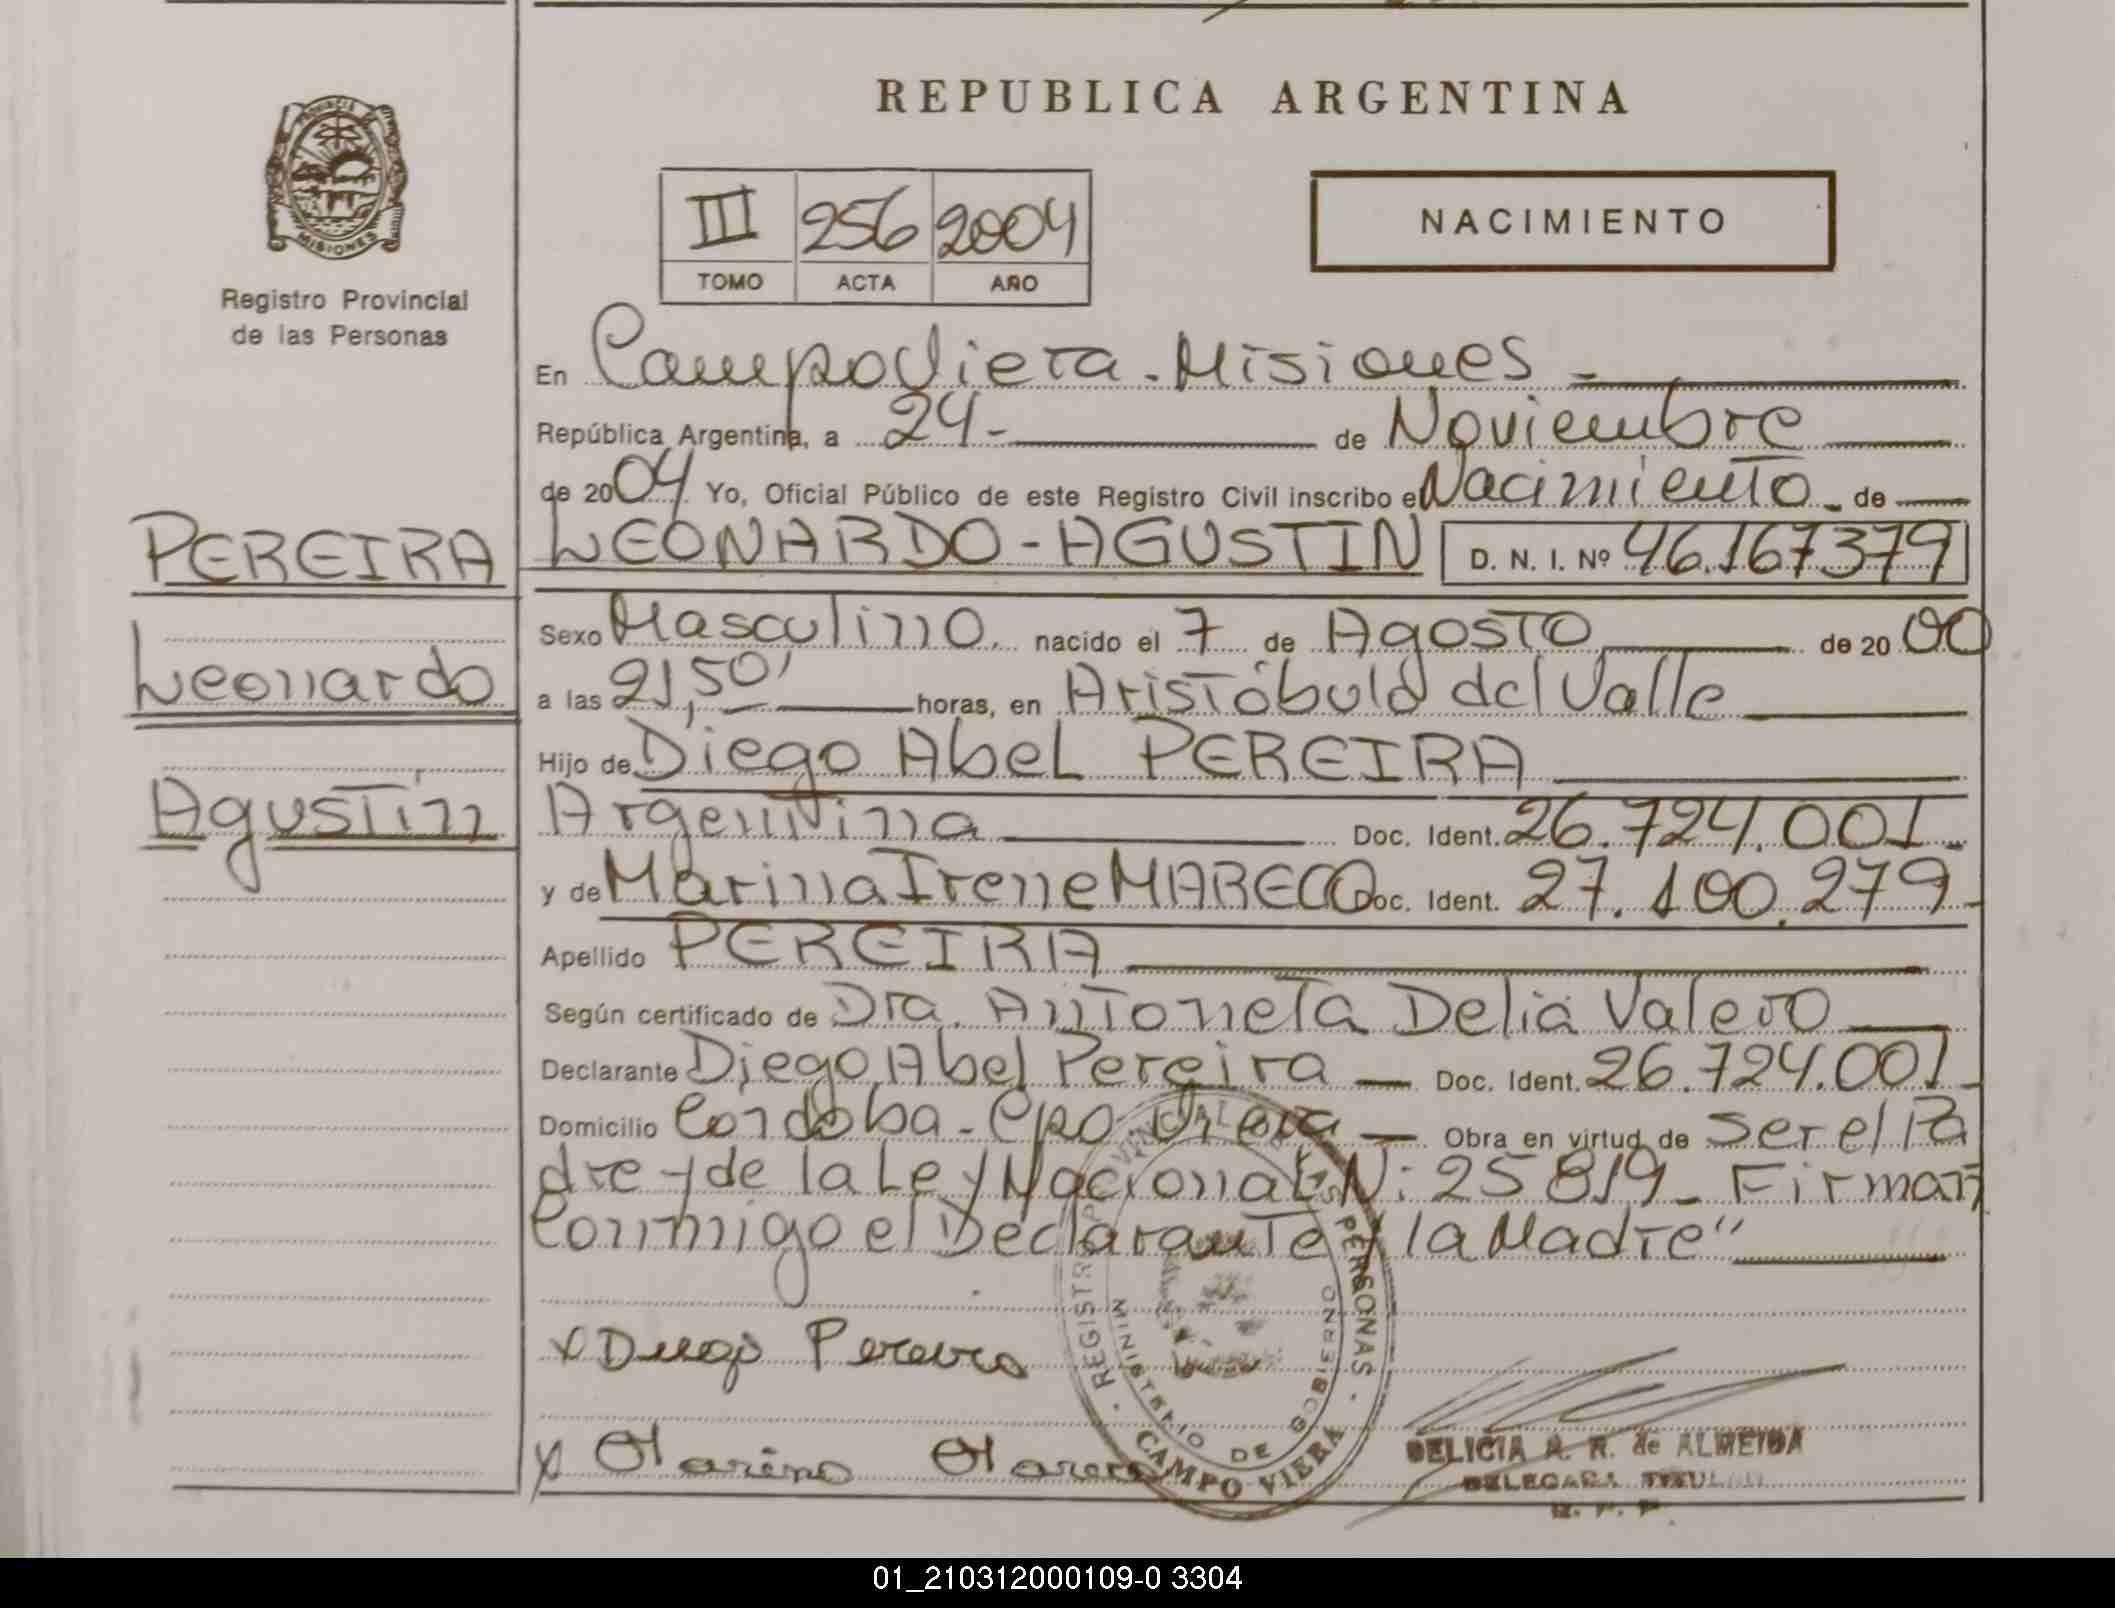 REPUBLICA ARGENTINA
PROVINCIA DE
MISIONES
Registro Provincial
de las Personas
III 256 2004
TOMO ACTA AÑO
NACIMIENTO
En Campo Viera - Misiones -
República Argentina, a 24 - de Noviembre
de 2004 Yo, Oficial Público de este Registro Civil inscribo el Nacimiento - de
PEREIRA
Leonardo
Agustín
LEONARDO - AGUSTIN D. N. I. Nº 46.167379
Sexo Masculino. nacido el 7 de Agosto de 2000
a las 21,50' horas, en Aristóbulo del Valle
Hijo de Diego Abel PEREIRA
Argentina Doc. Ident. 26.724.001 -
y de Marina Irene MARECO Doc. Ident. 27.100.279 -
Apellido PEREIRA
Según certificado de Dra. Antoneta Delia Valero
Declarante Diego Abel Pereira - Doc. Ident. 26.724.001 -
Domicilio Cordoba - Cpo Viera - Obra en virtud de ser el Pa
dre y de la Ley Nacional N: 25819 - Firman
Conmigo el Declarante y la Madre"
x Diego Pereira
x Marina Mareco
REGISTRO PROVINCIAL DE LAS PERSONAS
MINISTERIO DE GOBIERNO
CAMPO VIERA
DELICIA A. R. de ALMEIDA
DELEGADA TITULAR
R. P. P.
01_210312000109-0 3304